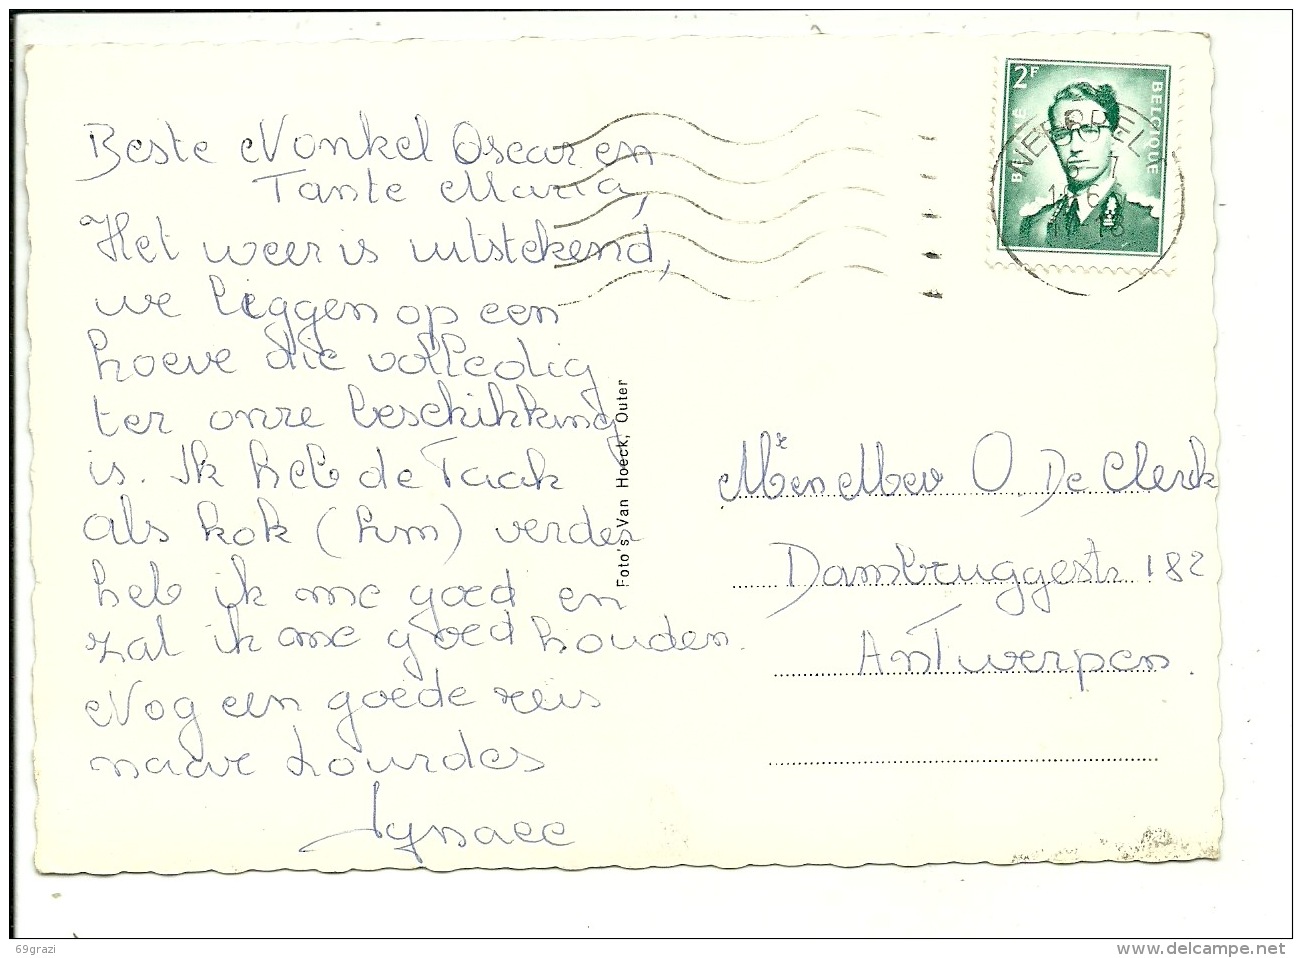 Beste Nonkel Oscar en
Tante Maria,
Het weer is uitstekend,
we liggen op een
hoeve die volledig
ter onze beschikking
is. Ik heb de taak
als kok (hm) verder
heb ik me goed en
zal ik me goed houden.
Nog een goede reis
naar Lourdes
Ignace
Foto's Van Hoeck, Outer
2F
BELGIQUE
Mr en Mev O. De Clerck
Dambruggestr 182
Antwerpen.
69grazi
delcampe.net